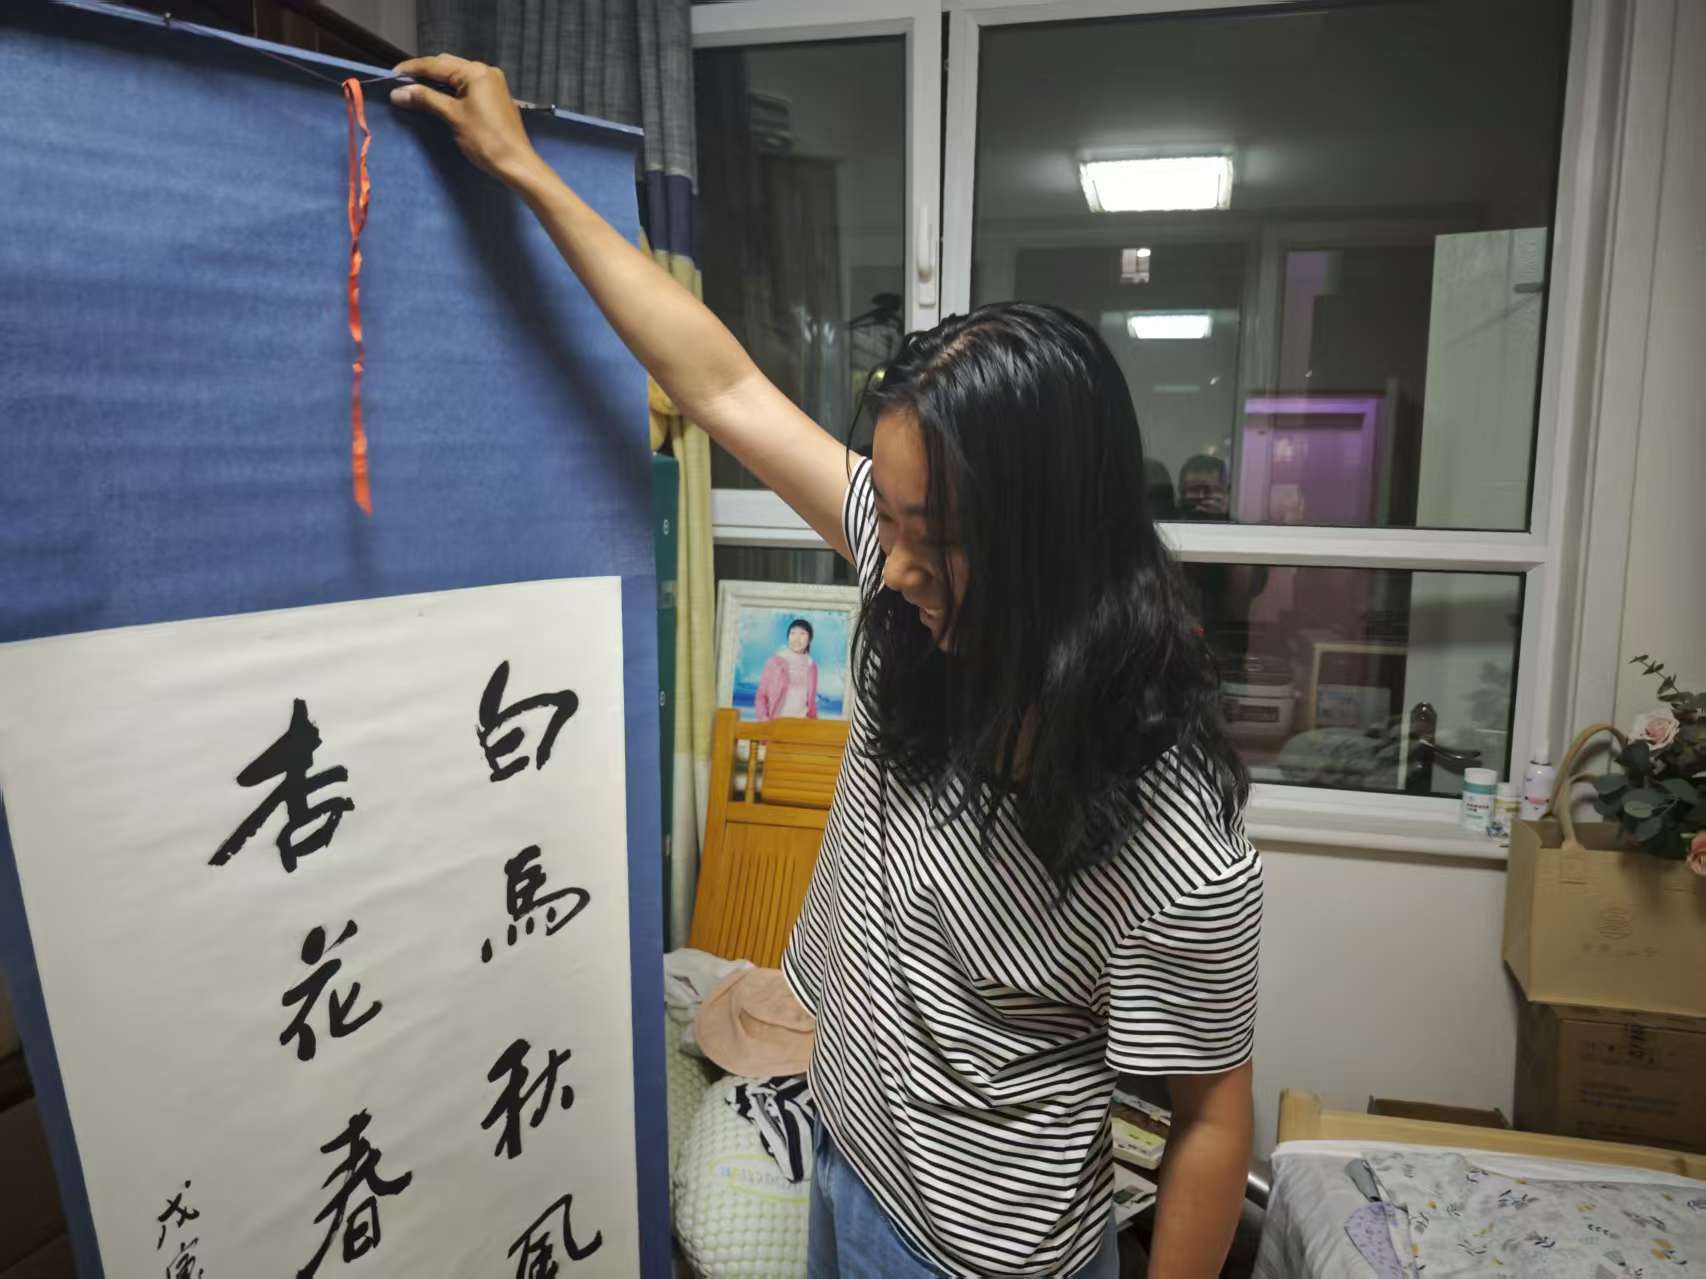 白馬秋風
杏花春
戊寅